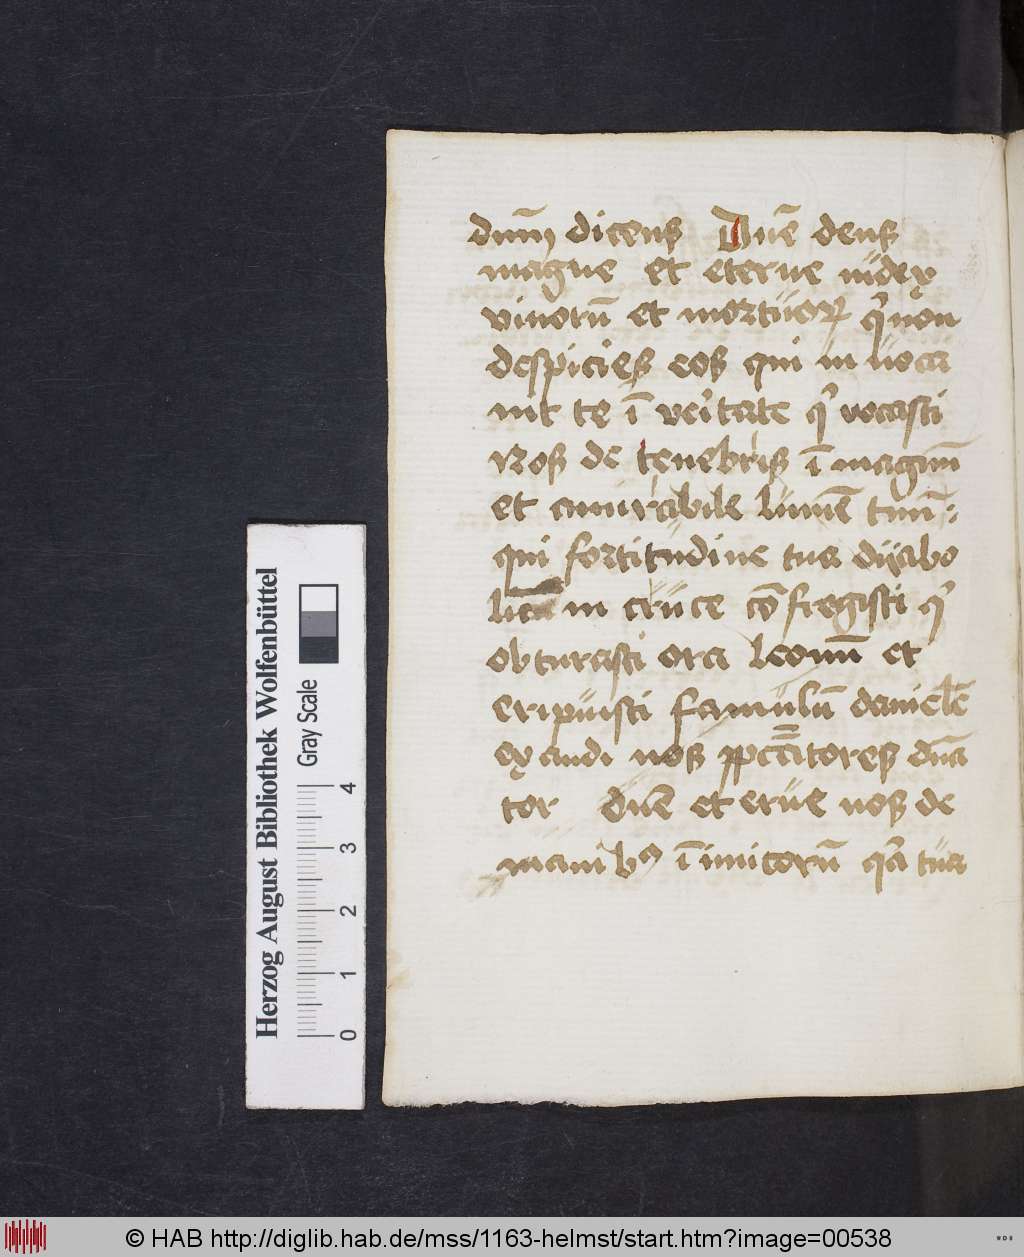 dmū dicens Dnē deus
magne et eterne iudex
viuorū et mortuor qͥ non
despicies eos qui in uoca
nt te ī veritate qͥ vocasti
nos de tenebris ī magnū
et amirabile lumē tuū
qui fortitudine tua dyabo
licā in cruce cōfregisti qͥ
obturasti ora leonū et
eripuisti famulū danielē
exaudi nos ppctātores
tor dnē et erue nos de
manibꝰ īimicorū qͣ tua
Herzog August Bibliothek Wolfenbüttel
Gray Scale
0 1 2 3 4
© HAB http://diglib.hab.de/mss/1163-helmst/start.htm?image=00538